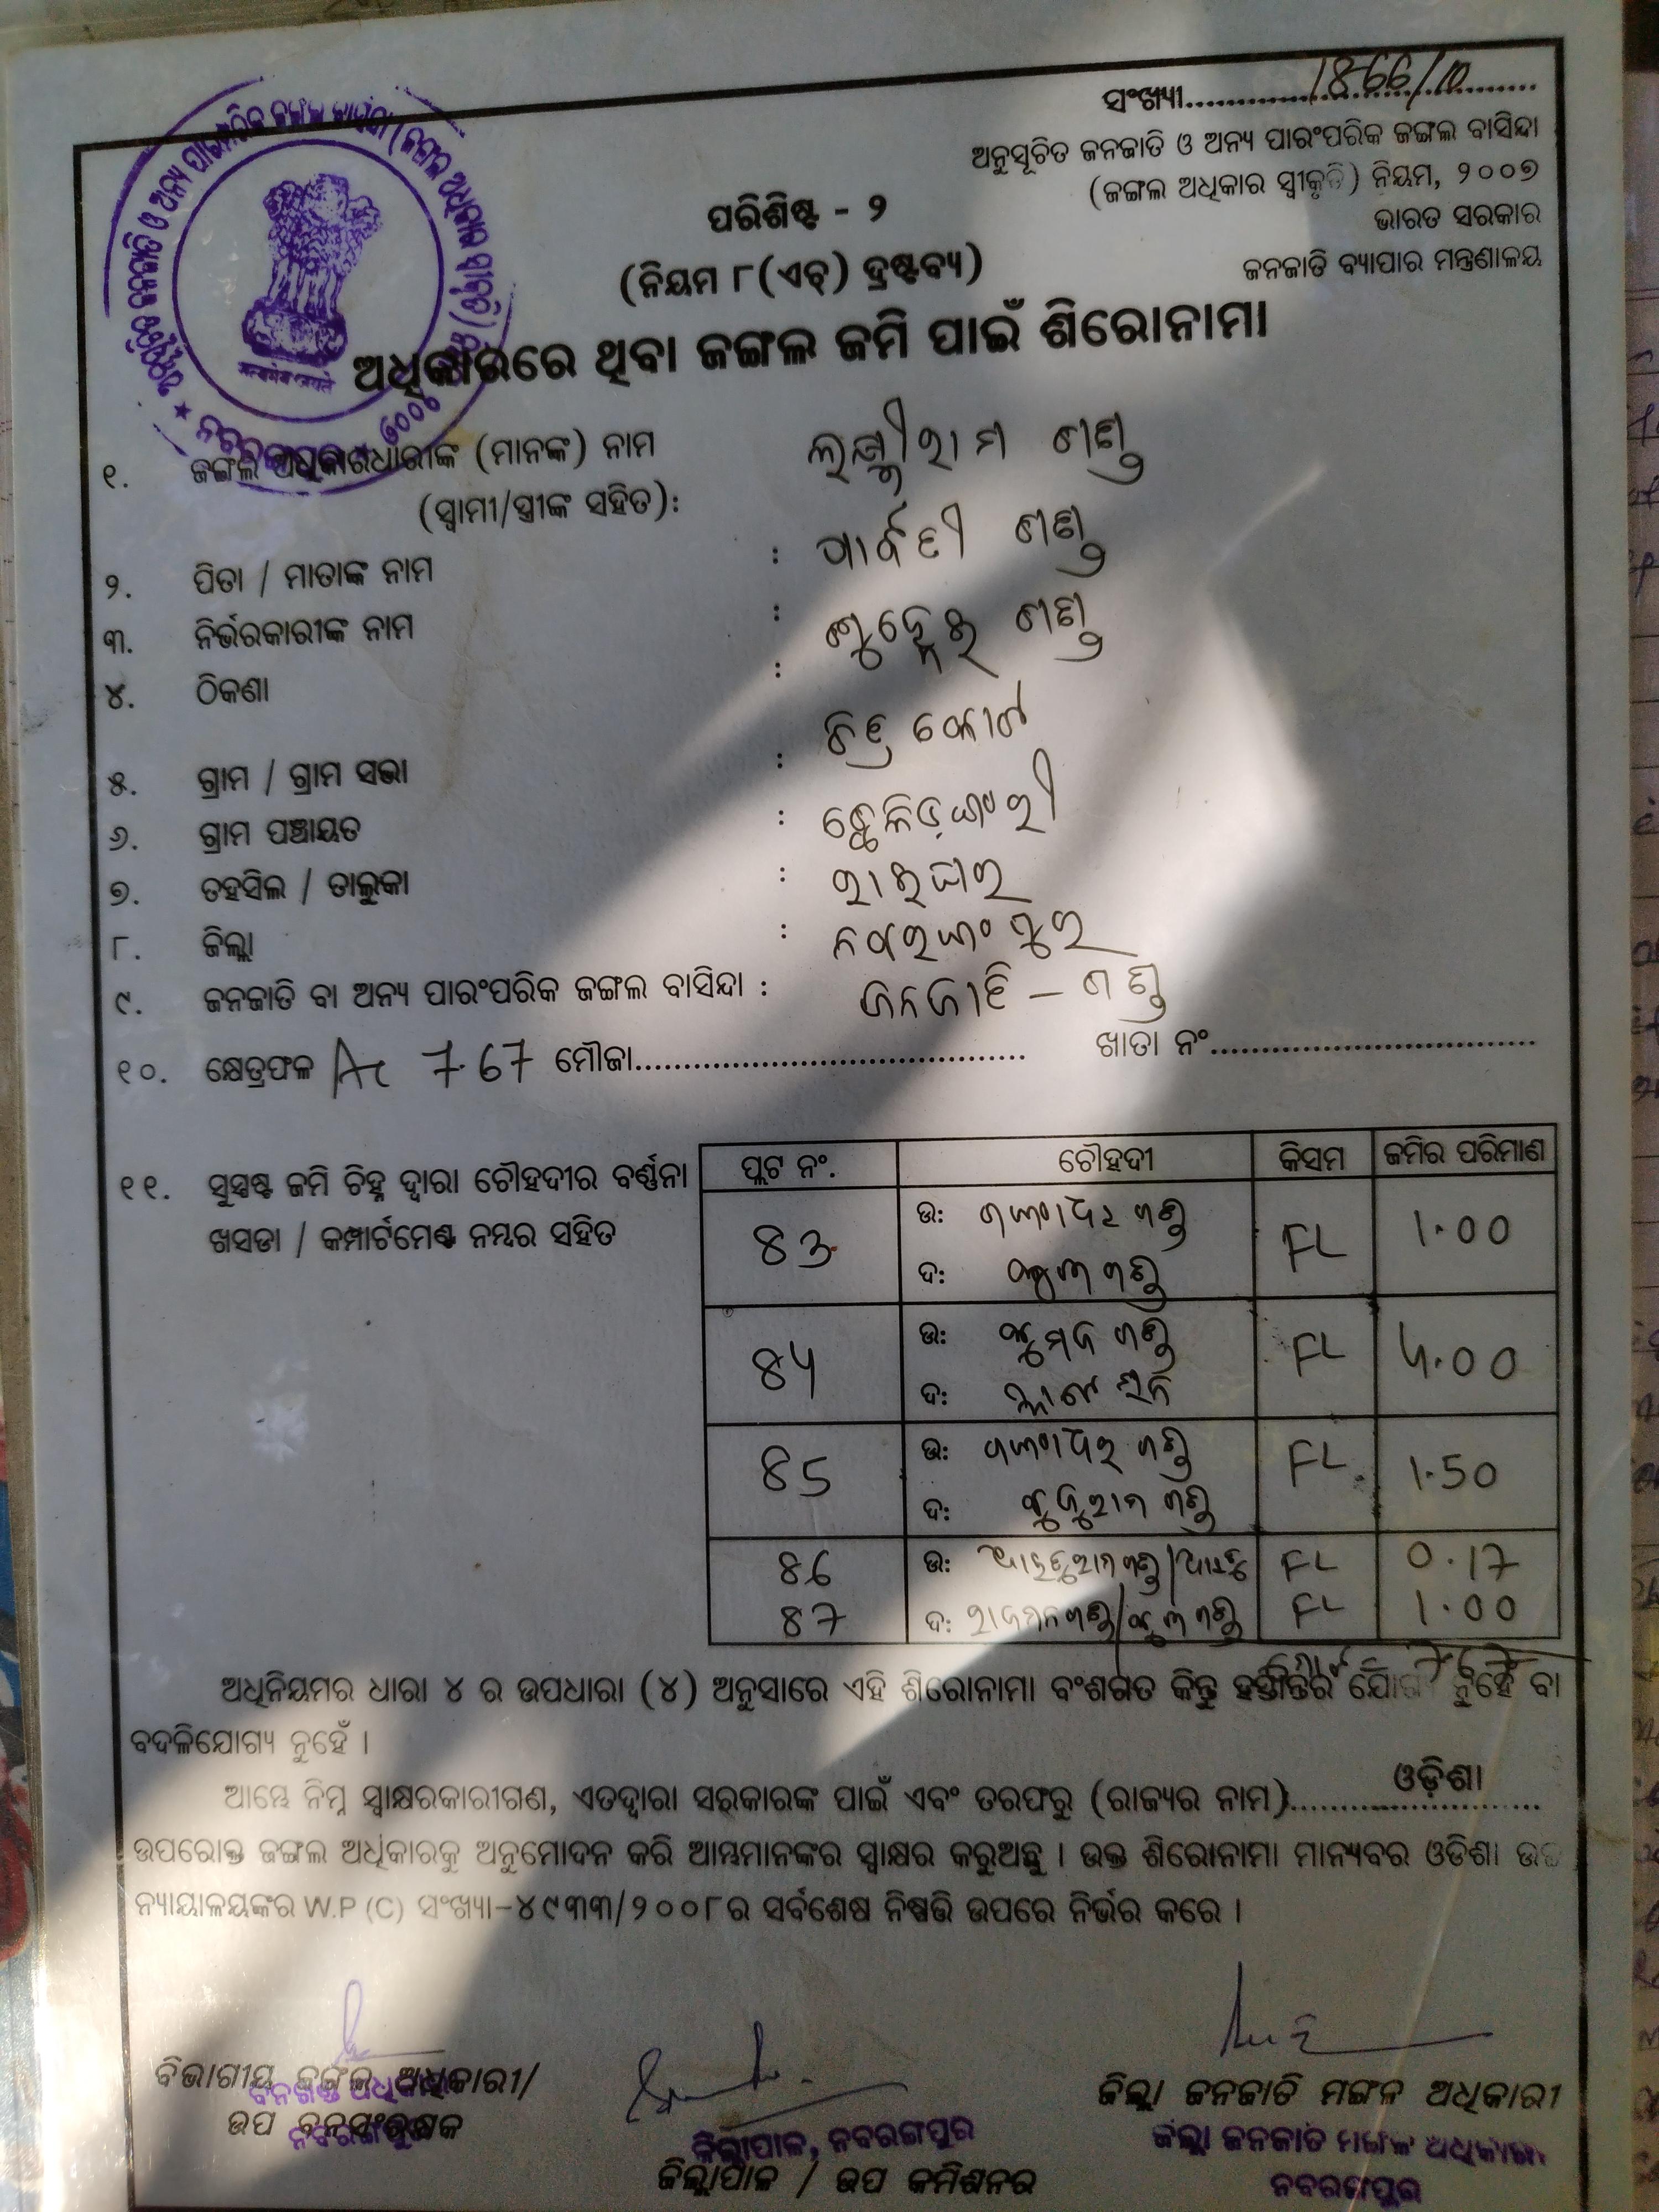 ସଂଖ୍ୟା 1866/10
ଅନୁସୂଚିତ ଜନଜାତି ଓ ଅନ୍ୟ ପାରଂପରିକ ଜଙ୍ଗଲ ବାସିନ୍ଦା
(ଜଙ୍ଗଲ ଅଧିକାର ସ୍ୱୀକୃତି) ନିୟମ, ୨୦୦୭
ଭାରତ ସରକାର
ଜନଜାତି ବ୍ୟାପାର ମନ୍ତ୍ରଣାଳୟ
ପରିଶିଷ୍ଟ - ୨
(ନିୟମ ୮(ଏଚ୍) ଦ୍ରଷ୍ଟବ୍ୟ)
ଅଧିକାରରେ ଥିବା ଜଙ୍ଗଲ ଜମି ପାଇଁ ଶିରୋନାମା
୧. ଜଙ୍ଗଲ ଅଧିକାରଧାରୀଙ୍କ (ମାନଙ୍କ) ନାମ ଲକ୍ଷ୍ମୀରାମ ଗଣ୍ଡ
(ସ୍ୱାମୀ/ସ୍ତ୍ରୀଙ୍କ ସହିତ):
୨. ପିତା / ମାତାଙ୍କ ନାମ : ପାର୍ବତୀ ଗଣ୍ଡ
୩. ନିର୍ଭରକାରୀଙ୍କ ନାମ : ଗଣ୍ଡ
୪. ଠିକଣା :
୫. ଗ୍ରାମ / ଗ୍ରାମ ସଭା : ଚିତ୍ରକୋଟ
୬. ଗ୍ରାମ ପଞ୍ଚାୟତ :
୭. ତହସିଲ / ତାଲୁକା : ରାଇଘର
୮. ଜିଲ୍ଲା : ନବରଙ୍ଗପୁର
୯. ଜନଜାତି ବା ଅନ୍ୟ ପାରଂପରିକ ଜଙ୍ଗଲ ବାସିନ୍ଦା : ଜନଜାତି - ଗଣ୍ଡ
୧୦. କ୍ଷେତ୍ରଫଳ Ac 7.67 ମୌଜା ଖାତା ନଂ
୧୧. ସୁସ୍ପଷ୍ଟ ଜମି ଚିହ୍ନ ଦ୍ୱାରା ଚୌହଦୀର ବର୍ଣ୍ଣନା
ଖସଡା / କମ୍ପାର୍ଟମେଣ୍ଟ ନମ୍ବର ସହିତ
ପ୍ଲଟ ନଂ. ଚୌହଦୀ କିସମ ଜମିର ପରିମାଣ
83 ଉ: ଗଙ୍ଗାଧର ଗଣ୍ଡ FL 1.00
ଦ: ଗଣ୍ଡ
84 ଉ: ଗଣ୍ଡ FL 4.00
ଦ:
85 ଉ: ଗଙ୍ଗାଧର ଗଣ୍ଡ FL 1.50
ଦ: ଗଣ୍ଡ
86 ଉ: FL 0.17
87 ଦ: FL 1.00
ଅଧିନିୟମର ଧାରା ୪ ର ଉପଧାରା (୪) ଅନୁସାରେ ଏହି ଶିରୋନାମା ବଂଶଗତ କିନ୍ତୁ ହସ୍ତାନ୍ତର ଯୋଗ୍ୟ ନୁହେଁ ବା
ବଦଳିଯୋଗ୍ୟ ନୁହେଁ ।
ଆମ୍ଭେ ନିମ୍ନ ସ୍ୱାକ୍ଷରକାରୀଗଣ, ଏତଦ୍ୱାରା ସରକାରଙ୍କ ପାଇଁ ଏବଂ ତରଫରୁ (ରାଜ୍ୟର ନାମ) ଓଡ଼ିଶା
ଉପରୋକ୍ତ ଜଙ୍ଗଲ ଅଧିକାରକୁ ଅନୁମୋଦନ କରି ଆମ୍ଭମାନଙ୍କର ସ୍ୱାକ୍ଷର କରୁଅଛୁ । ଉକ୍ତ ଶିରୋନାମା ମାନ୍ୟବର ଓଡିଶା ଉଚ୍ଚ
ନ୍ୟାୟାଳୟଙ୍କର W.P (C) ସଂଖ୍ୟା-୪୯୩୩/୨୦୦୮ର ସର୍ବଶେଷ ନିଷ୍ପତ୍ତି ଉପରେ ନିର୍ଭର କରେ ।
ବିଭାଗୀୟ ଜଙ୍ଗଲ ଅଧିକାରୀ/
ଉପ ବନସଂରକ୍ଷକ
ଜିଲ୍ଲାପାଳ, ନବରଙ୍ଗପୁର
ଜିଲ୍ଲାପାଳ / ଉପ କମିଶନର
ଜିଲ୍ଲା ଜନଜାତି ମଙ୍ଗଳ ଅଧିକାରୀ
ଜିଲ୍ଲା ଜନଜାତି ମଙ୍ଗଳ ଅଧିକାରୀ
ନବରଙ୍ଗପୁର